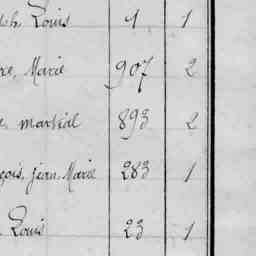 Louis 1 1
Marie 907 2
martial 893 2
çois, jean Marie 283 1
Louis 23 1